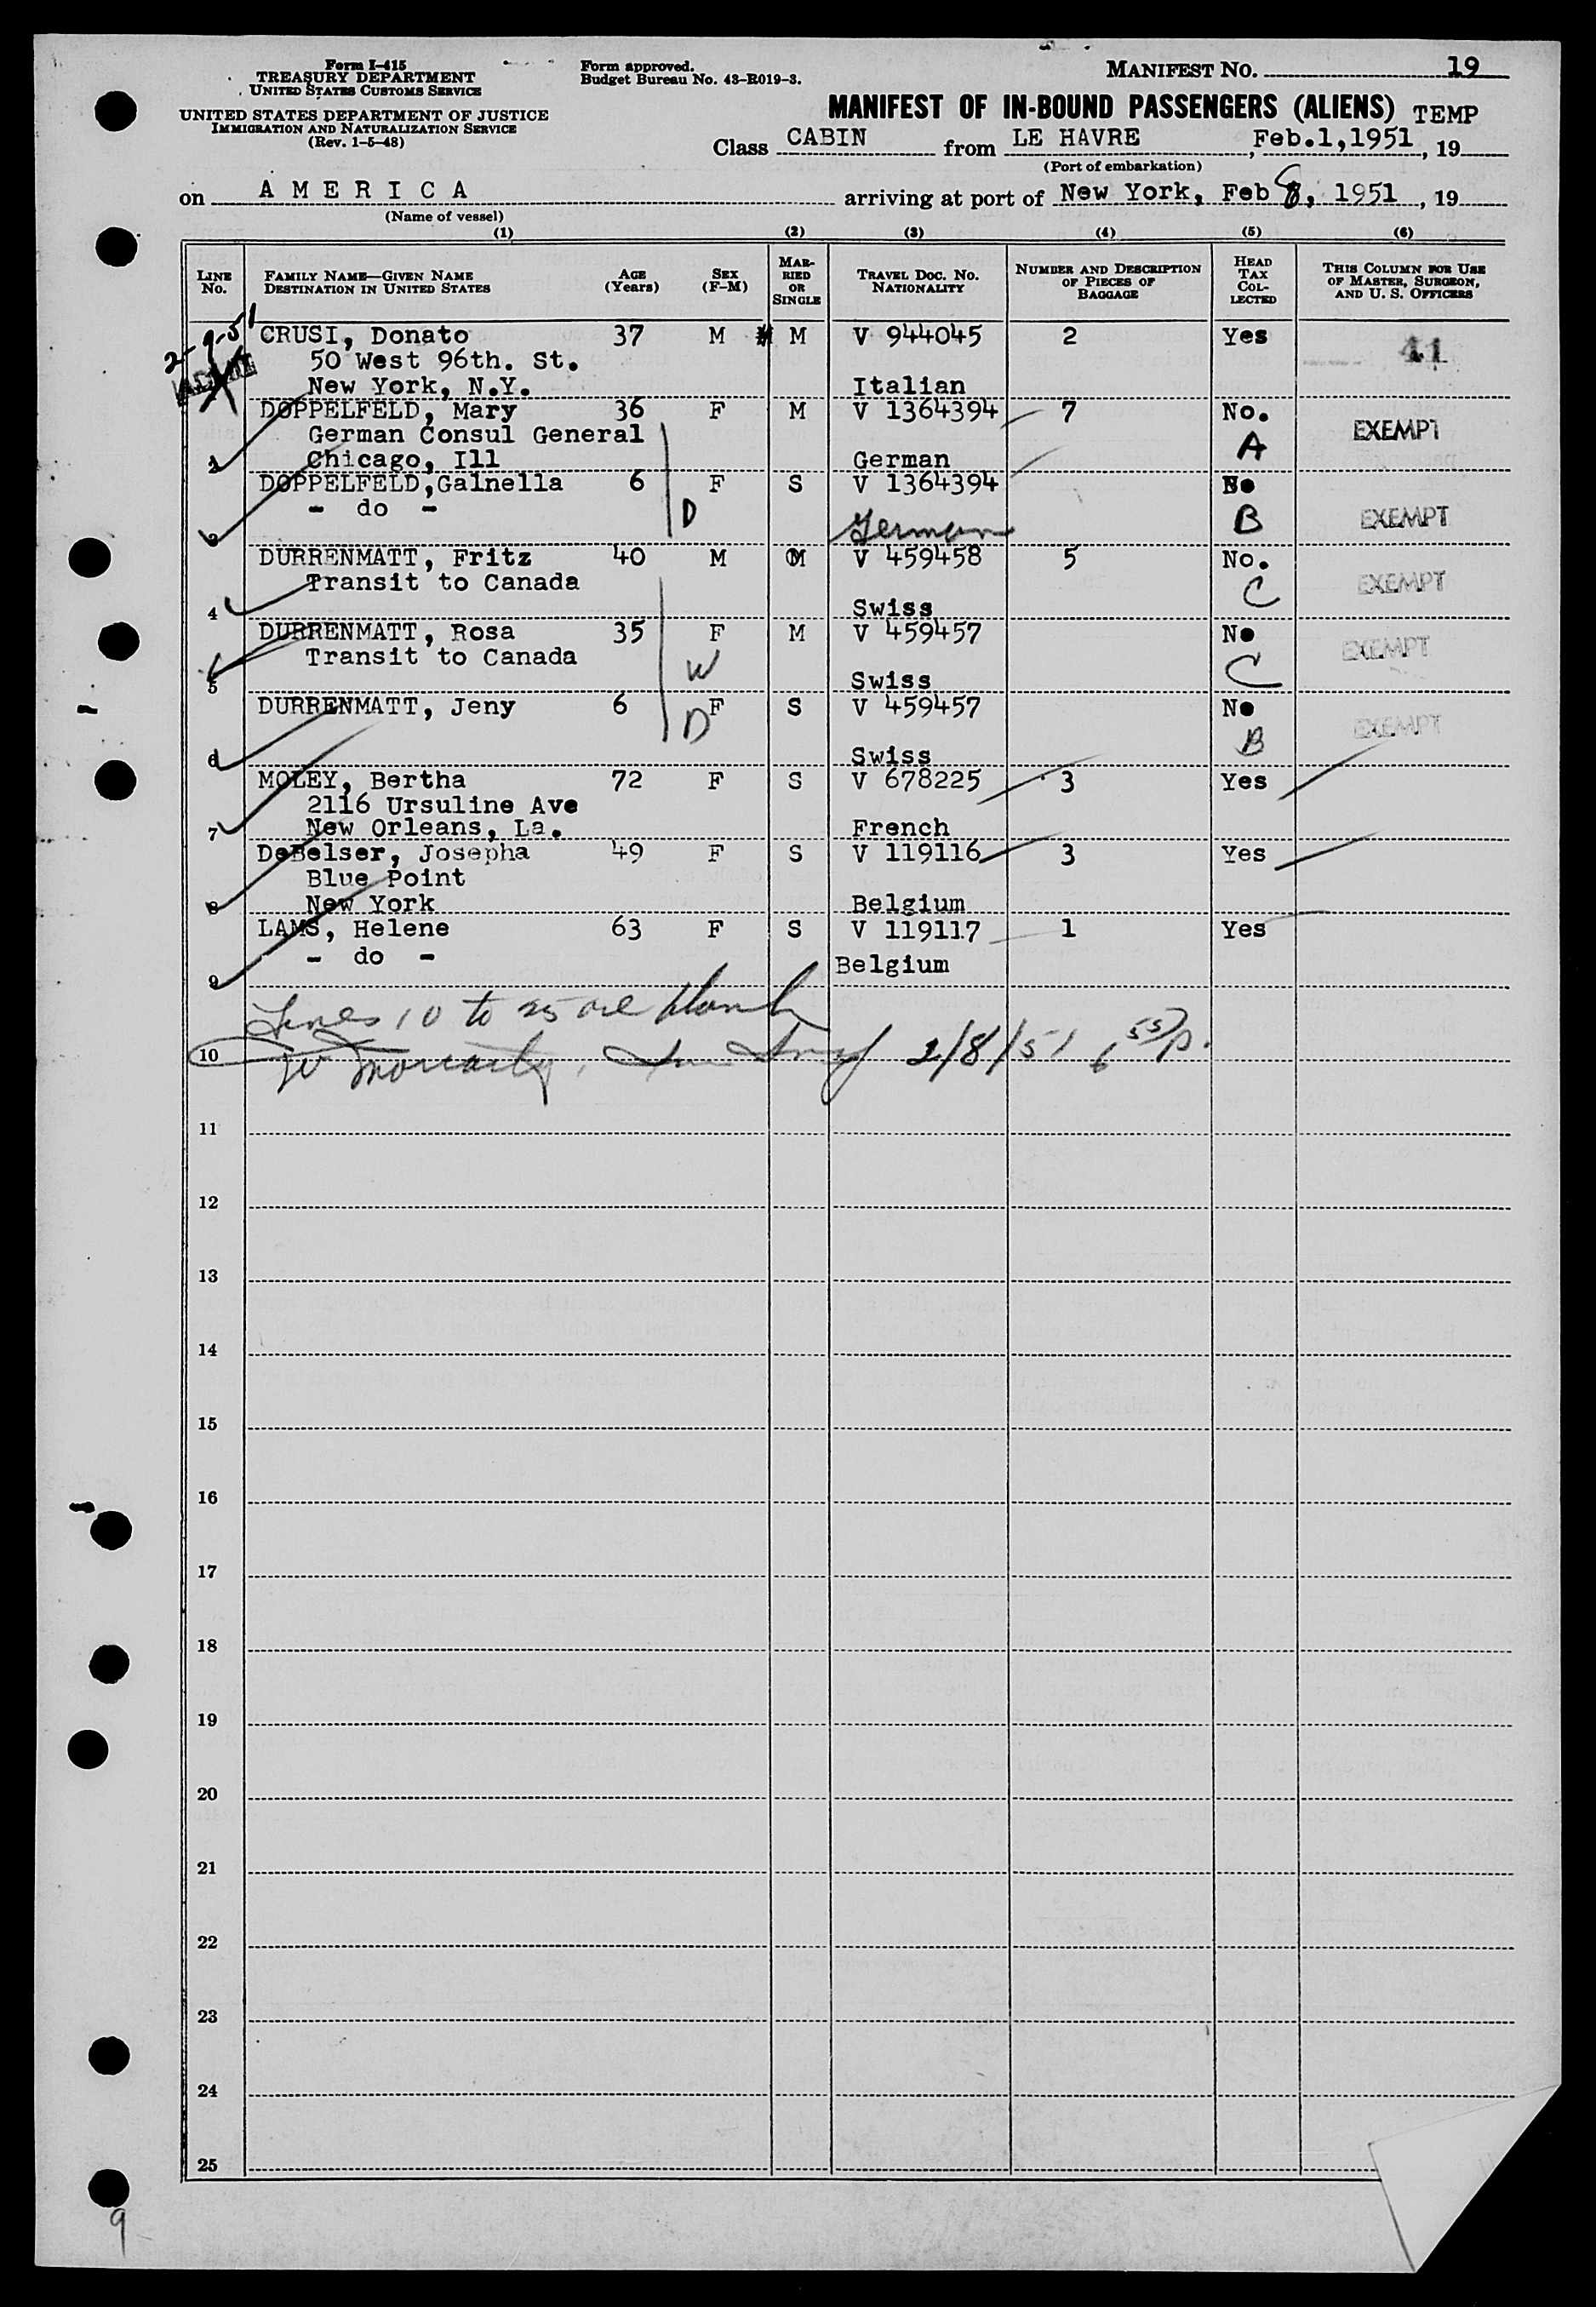 Form I-415
TREASURY DEPARTMENT
UNITED STATES CUSTOMS SERVICE
UNITED STATES DEPARTMENT OF JUSTICE
IMMIGRATION AND NATURALIZATION SERVICE
(Rev. 1-5-48)
Form approved.
Budget Bureau No. 43-R019-3.
MANIFEST NO. 19
MANIFEST OF IN-BOUND PASSENGERS (ALIENS) TEMP
Class CABIN from LE HAVRE, Feb.1,1951, 19
(Port of embarkation)
on A M E R I C A arriving at port of New York, Feb 8, 1951, 19
(Name of vessel)
(1) (2) (3) (4) (5) (6)
LINE NO. FAMILY NAME—GIVEN NAME DESTINATION IN UNITED STATES AGE (Years) SEX (F-M) MARRIED OR SINGLE TRAVEL DOC. NO. NATIONALITY NUMBER AND DESCRIPTION OF PIECES OF BAGGAGE HEAD TAX COLLECTED THIS COLUMN FOR USE OF MASTER, SURGEON, AND U. S. OFFICERS
2-9-51
CRUSI, Donato 37 M M V 944045 2 Yes 41
50 West 96th. St.
New York, N.Y. Italian
DOPPELFELD, Mary 36 F M V 1364394 7 No.
German Consul General A EXEMPT
2 Chicago, Ill German
DOPPELFELD,Gainella 6 F S V 1364394 No
- do - D B EXEMPT
3 German
DURRENMATT, Fritz 40 M M V 459458 5 No.
Transit to Canada C EXEMPT
4 Swiss
DURRENMATT, Rosa 35 F M V 459457 No
Transit to Canada W C EXEMPT
5 Swiss
DURRENMATT, Jeny 6 F S V 459457 No
D B EXEMPT
6 Swiss
MOLEY, Bertha 72 F S V 678225 3 Yes
2116 Ursuline Ave
7 New Orleans, La. French
DeBelser, Josepha 49 F S V 119116 3 Yes
Blue Point
8 New York Belgium
LAMS, Helene 63 F S V 119117 1 Yes
- do - Belgium
9
Lines 10 to 25 are blank
10 Moriarty, Imm Insp 2/8/51 6 55p.
11
12
13
14
15
16
17
18
19
20
21
22
23
24
25
9